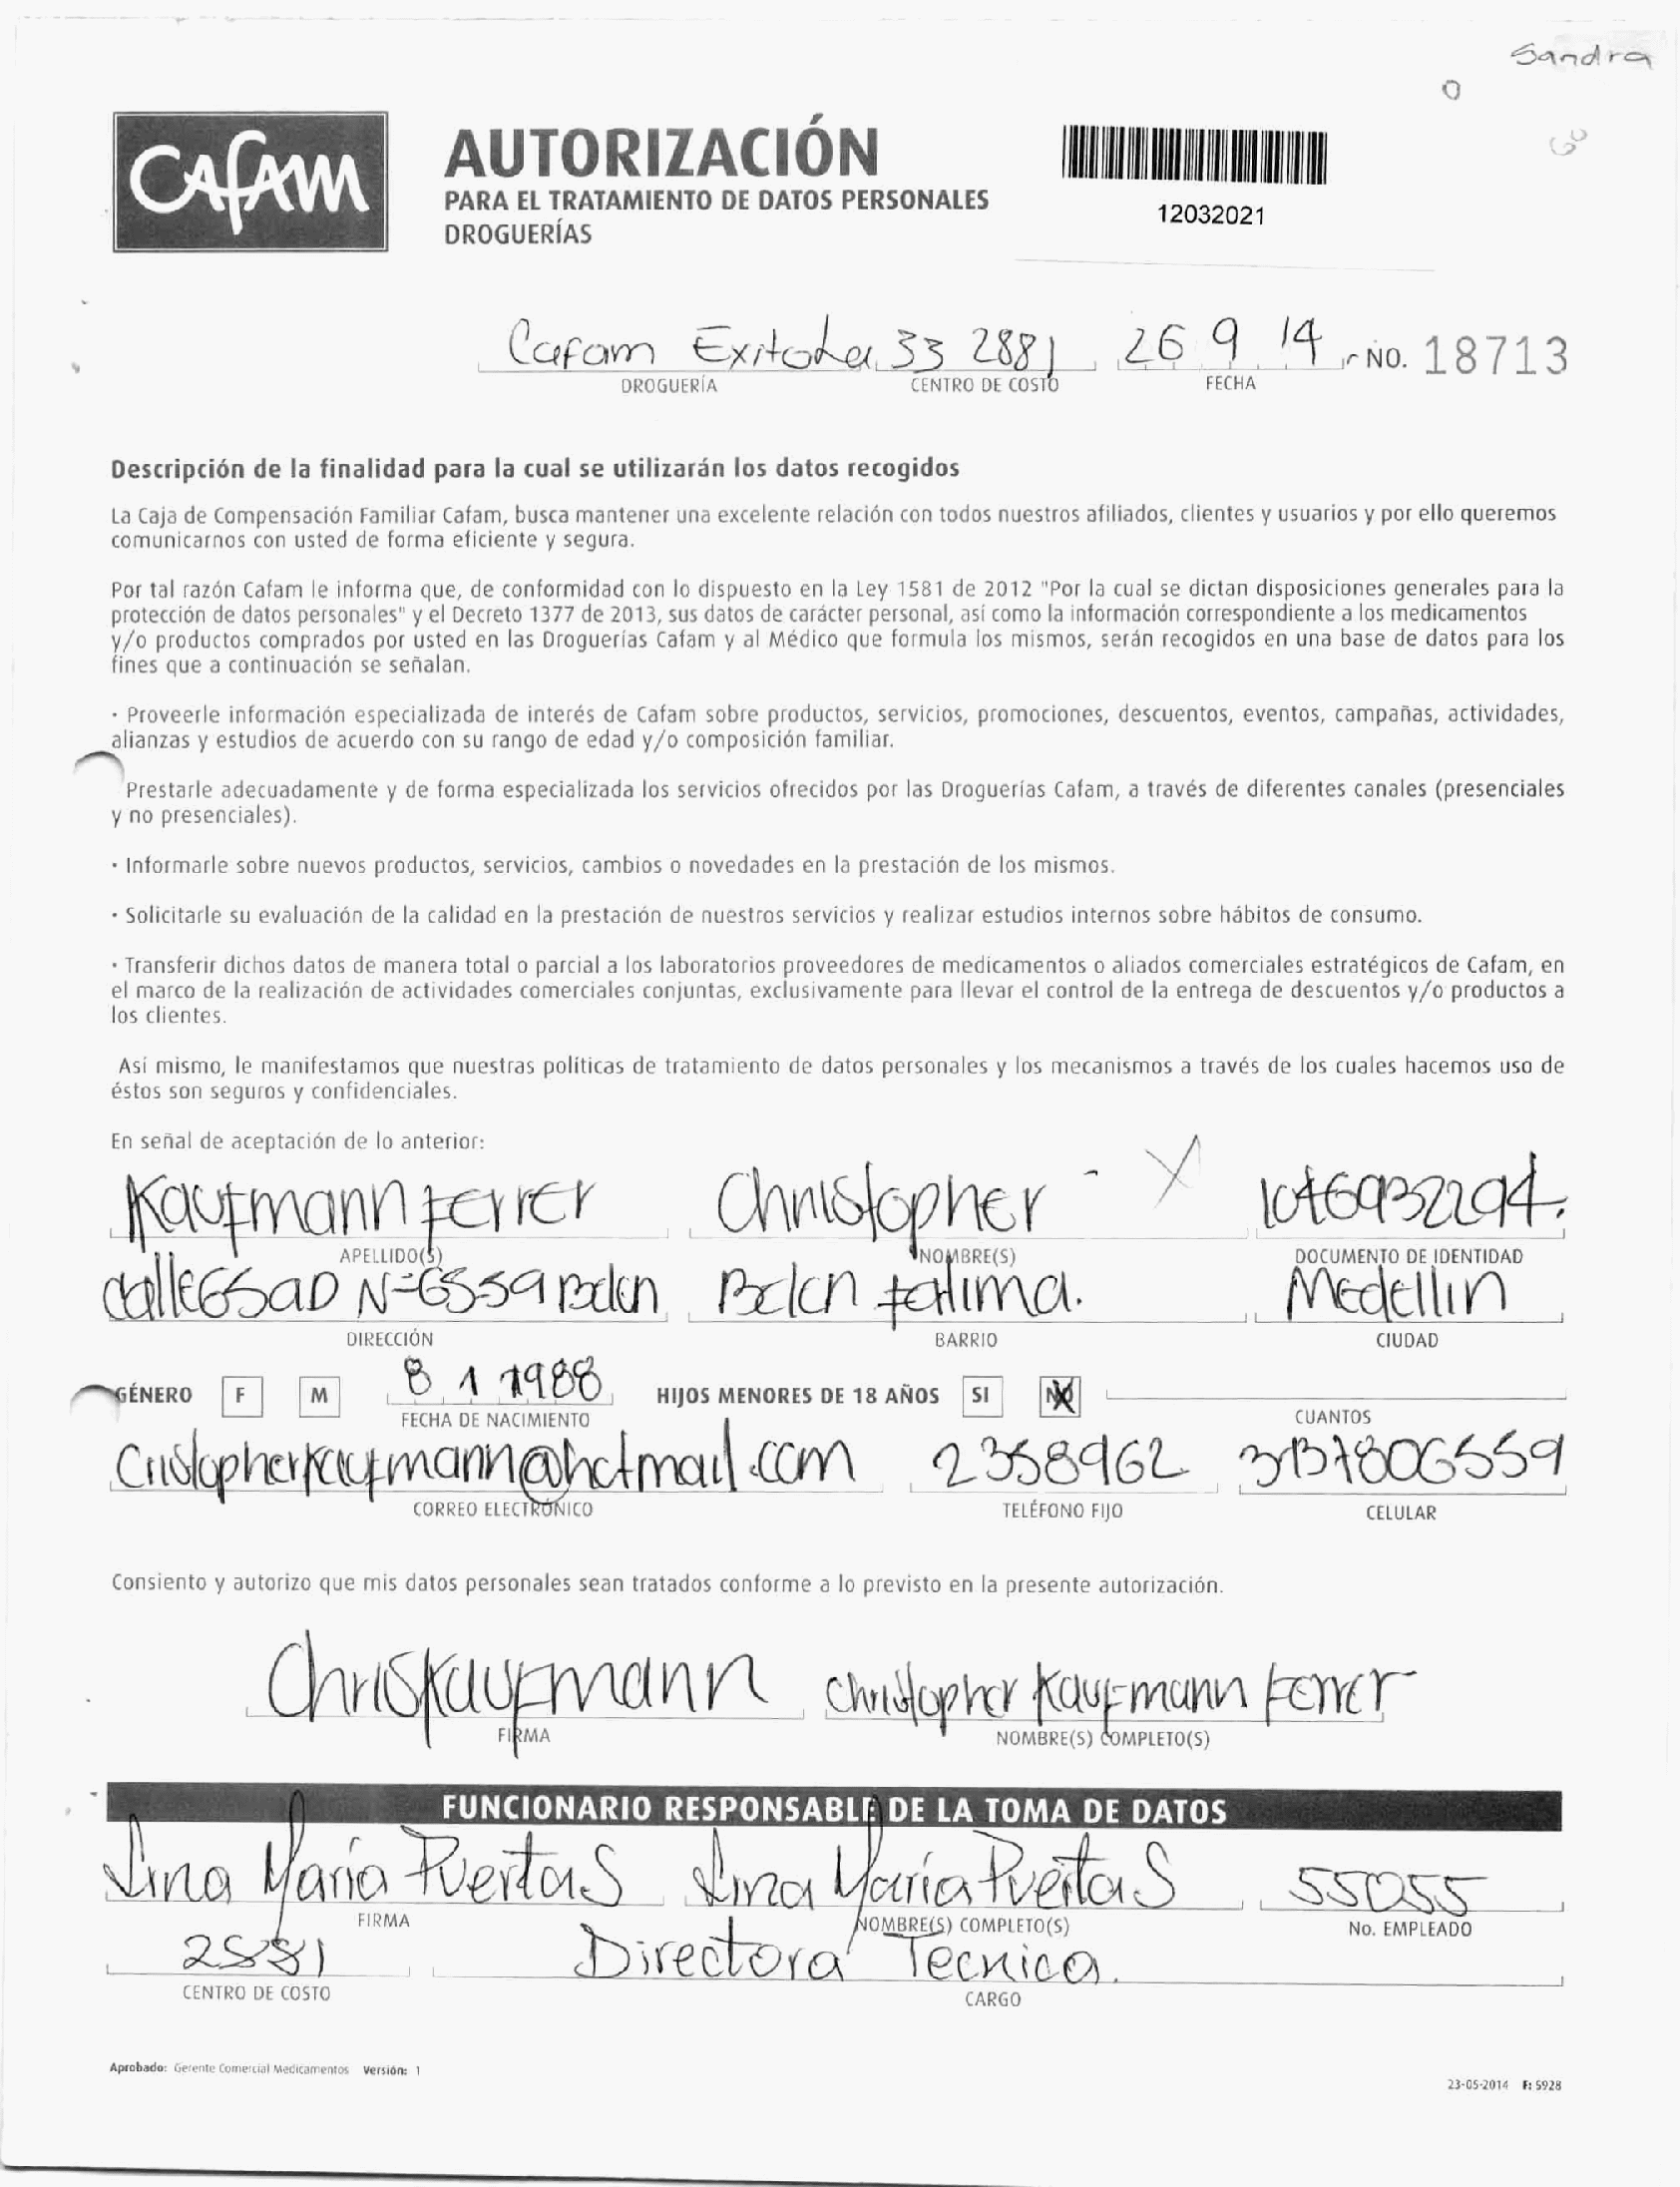 Sandra
CAfAM
AUTORIZACIÓN
PARA EL TRATAMIENTO DE DATOS PERSONALES
DROGUERÍAS
12032021
Cafam Exito La 33 2881 26 9 14 No. 18713
DROGUERÍA CENTRO DE COSTO FECHA
Descripción de la finalidad para la cual se utilizarán los datos recogidos
La Caja de Compensación Familiar Cafam, busca mantener una excelente relación con todos nuestros afiliados, clientes y usuarios y por ello queremos
comunicarnos con usted de forma eficiente y segura.
Por tal razón Cafam le informa que, de conformidad con lo dispuesto en la Ley 1581 de 2012 "Por la cual se dictan disposiciones generales para la
protección de datos personales" y el Decreto 1377 de 2013, sus datos de carácter personal, así como la información correspondiente a los medicamentos
y/o productos comprados por usted en las Droguerías Cafam y al Médico que formula los mismos, serán recogidos en una base de datos para los
fines que a continuación se señalan.
· Proveerle información especializada de interés de Cafam sobre productos, servicios, promociones, descuentos, eventos, campañas, actividades,
alianzas y estudios de acuerdo con su rango de edad y/o composición familiar.
Prestarle adecuadamente y de forma especializada los servicios ofrecidos por las Droguerías Cafam, a través de diferentes canales (presenciales
y no presenciales).
· Informarle sobre nuevos productos, servicios, cambios o novedades en la prestación de los mismos.
· Solicitarle su evaluación de la calidad en la prestación de nuestros servicios y realizar estudios internos sobre hábitos de consumo.
· Transferir dichos datos de manera total o parcial a los laboratorios proveedores de medicamentos o aliados comerciales estratégicos de Cafam, en
el marco de la realización de actividades comerciales conjuntas, exclusivamente para llevar el control de la entrega de descuentos y/o productos a
los clientes.
Así mismo, le manifestamos que nuestras políticas de tratamiento de datos personales y los mecanismos a través de los cuales hacemos uso de
éstos son seguros y confidenciales.
En señal de aceptación de lo anterior:
Kaufmann Ferrer Christopher - X 1046932294.
APELLIDO(S) NOMBRE(S) DOCUMENTO DE IDENTIDAD
calle65aD N=6559 Belen Belen fatima. Medellin
DIRECCIÓN BARRIO CIUDAD
GÉNERO F M 8 1 1988 HIJOS MENORES DE 18 AÑOS SI NO
FECHA DE NACIMIENTO CUANTOS
Cristopherkaufmann@hotmail.com 2358962 3137806559
CORREO ELECTRÓNICO TELÉFONO FIJO CELULAR
Consiento y autorizo que mis datos personales sean tratados conforme a lo previsto en la presente autorización.
Chriskaufmann Christopher Kaufmann Ferrer
FIRMA NOMBRE(S) COMPLETO(S)
FUNCIONARIO RESPONSABLE DE LA TOMA DE DATOS
Lina Maria Puertas Lina Maria Puertas 55055
FIRMA NOMBRE(S) COMPLETO(S) No. EMPLEADO
2881 Directora Tecnica.
CENTRO DE COSTO CARGO
Aprobado: Gerente Comercial Medicamentos Versión: 1
23-05-2014 F: 5928